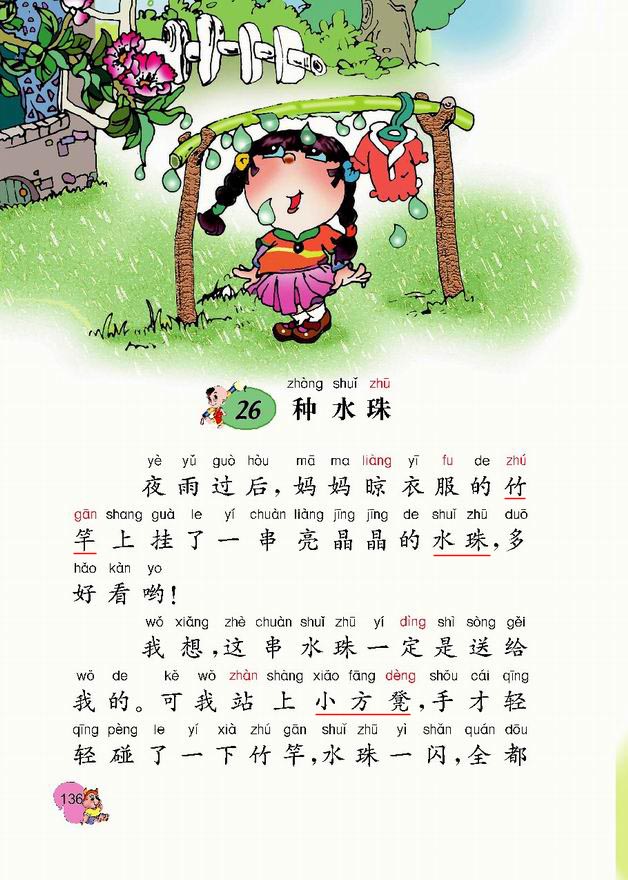 zhòng shuǐ zhū
26 种水珠
yè yǔ guò hòu mā ma liàng yī fu de zhú
夜雨过后，妈妈晾衣服的竹
gān shang guà le yí chuàn liàng jīng jīng de shuǐ zhū duō
竿上挂了一串亮晶晶的水珠，多
hǎo kàn yo
好看哟！
wǒ xiǎng zhè chuàn shuǐ zhū yí dìng shì sòng gěi
我想，这串水珠一定是送给
wǒ de kě wǒ zhàn shàng xiǎo fāng dèng shǒu cái qīng
我的。可我站上小方凳，手才轻
qīng pèng le yí xià zhú gān shuǐ zhū yi shǎn quán dōu
轻碰了一下竹竿，水珠一闪，全都
136